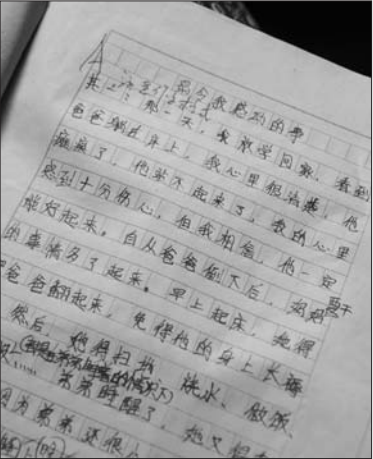 最令我感动的事
那一天，我放学回家，看到
爸爸躺在床上，我心里很清楚，他
瘫痪了，他站不起来了，我的心里
感到十分伤心，但我相信，他一定
能好起来。自从爸爸倒下后，妈妈要干
的事情多了起来。早上起床，她得
把爸爸翻起来，免得他的身上长褥
然后，她得扫地、洗水、做饭、
弟弟睡醒了，她又得
因为弟弟还很小